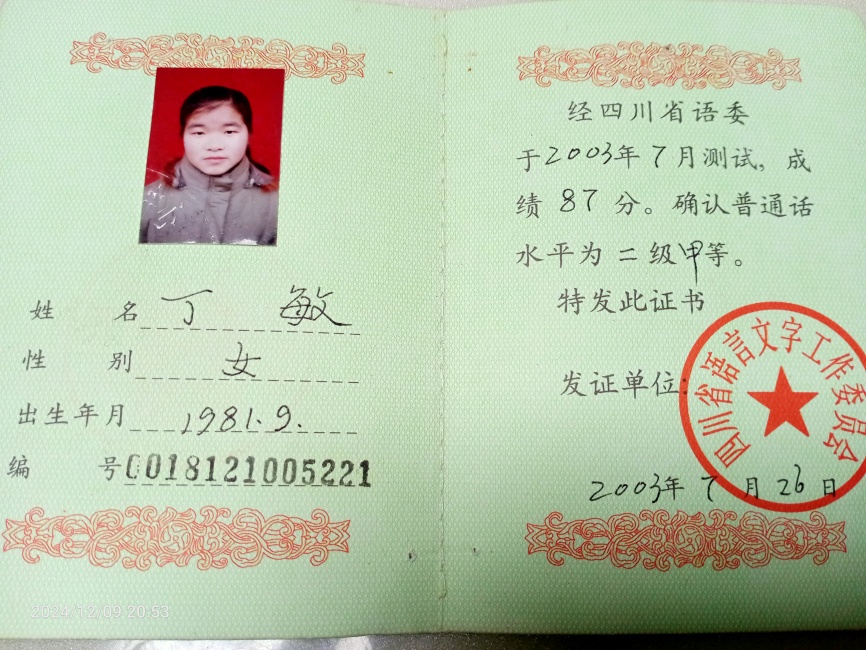 姓名 丁敏
性别 女
出生年月 1981.9.
编号 0018121005221
经四川省语委
于2003年7月测试，成
绩 87 分。确认普通话
水平为 二 级甲等。
特发此证书
发证单位：
四川省语言文字工作委员会
2003年 7 月 26 日
2024/12/09 20:53